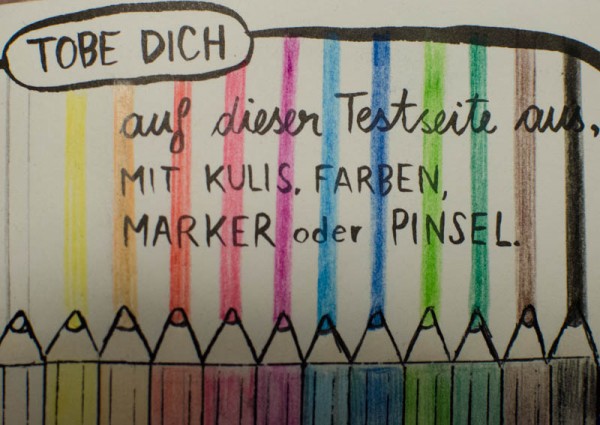 TOBE DICH
auf dieser Testseite aus,
MIT KULIS, FARBEN,
MARKER oder PINSEL.